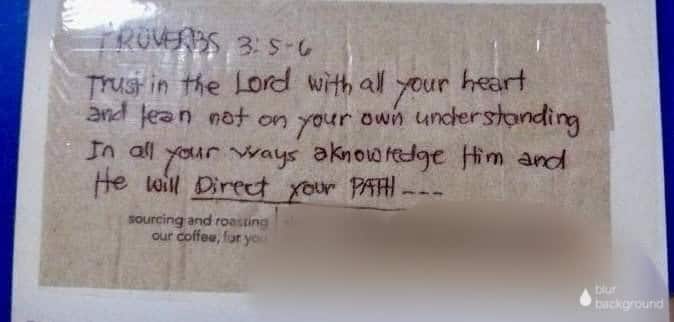 PROVERBS 3:5-6
Trust in the Lord with all your heart
and lean not on your own understanding
In all your ways aknowledge Him and
He will Direct your PATH ---
sourcing and roasting
our coffee, for you
blur
background